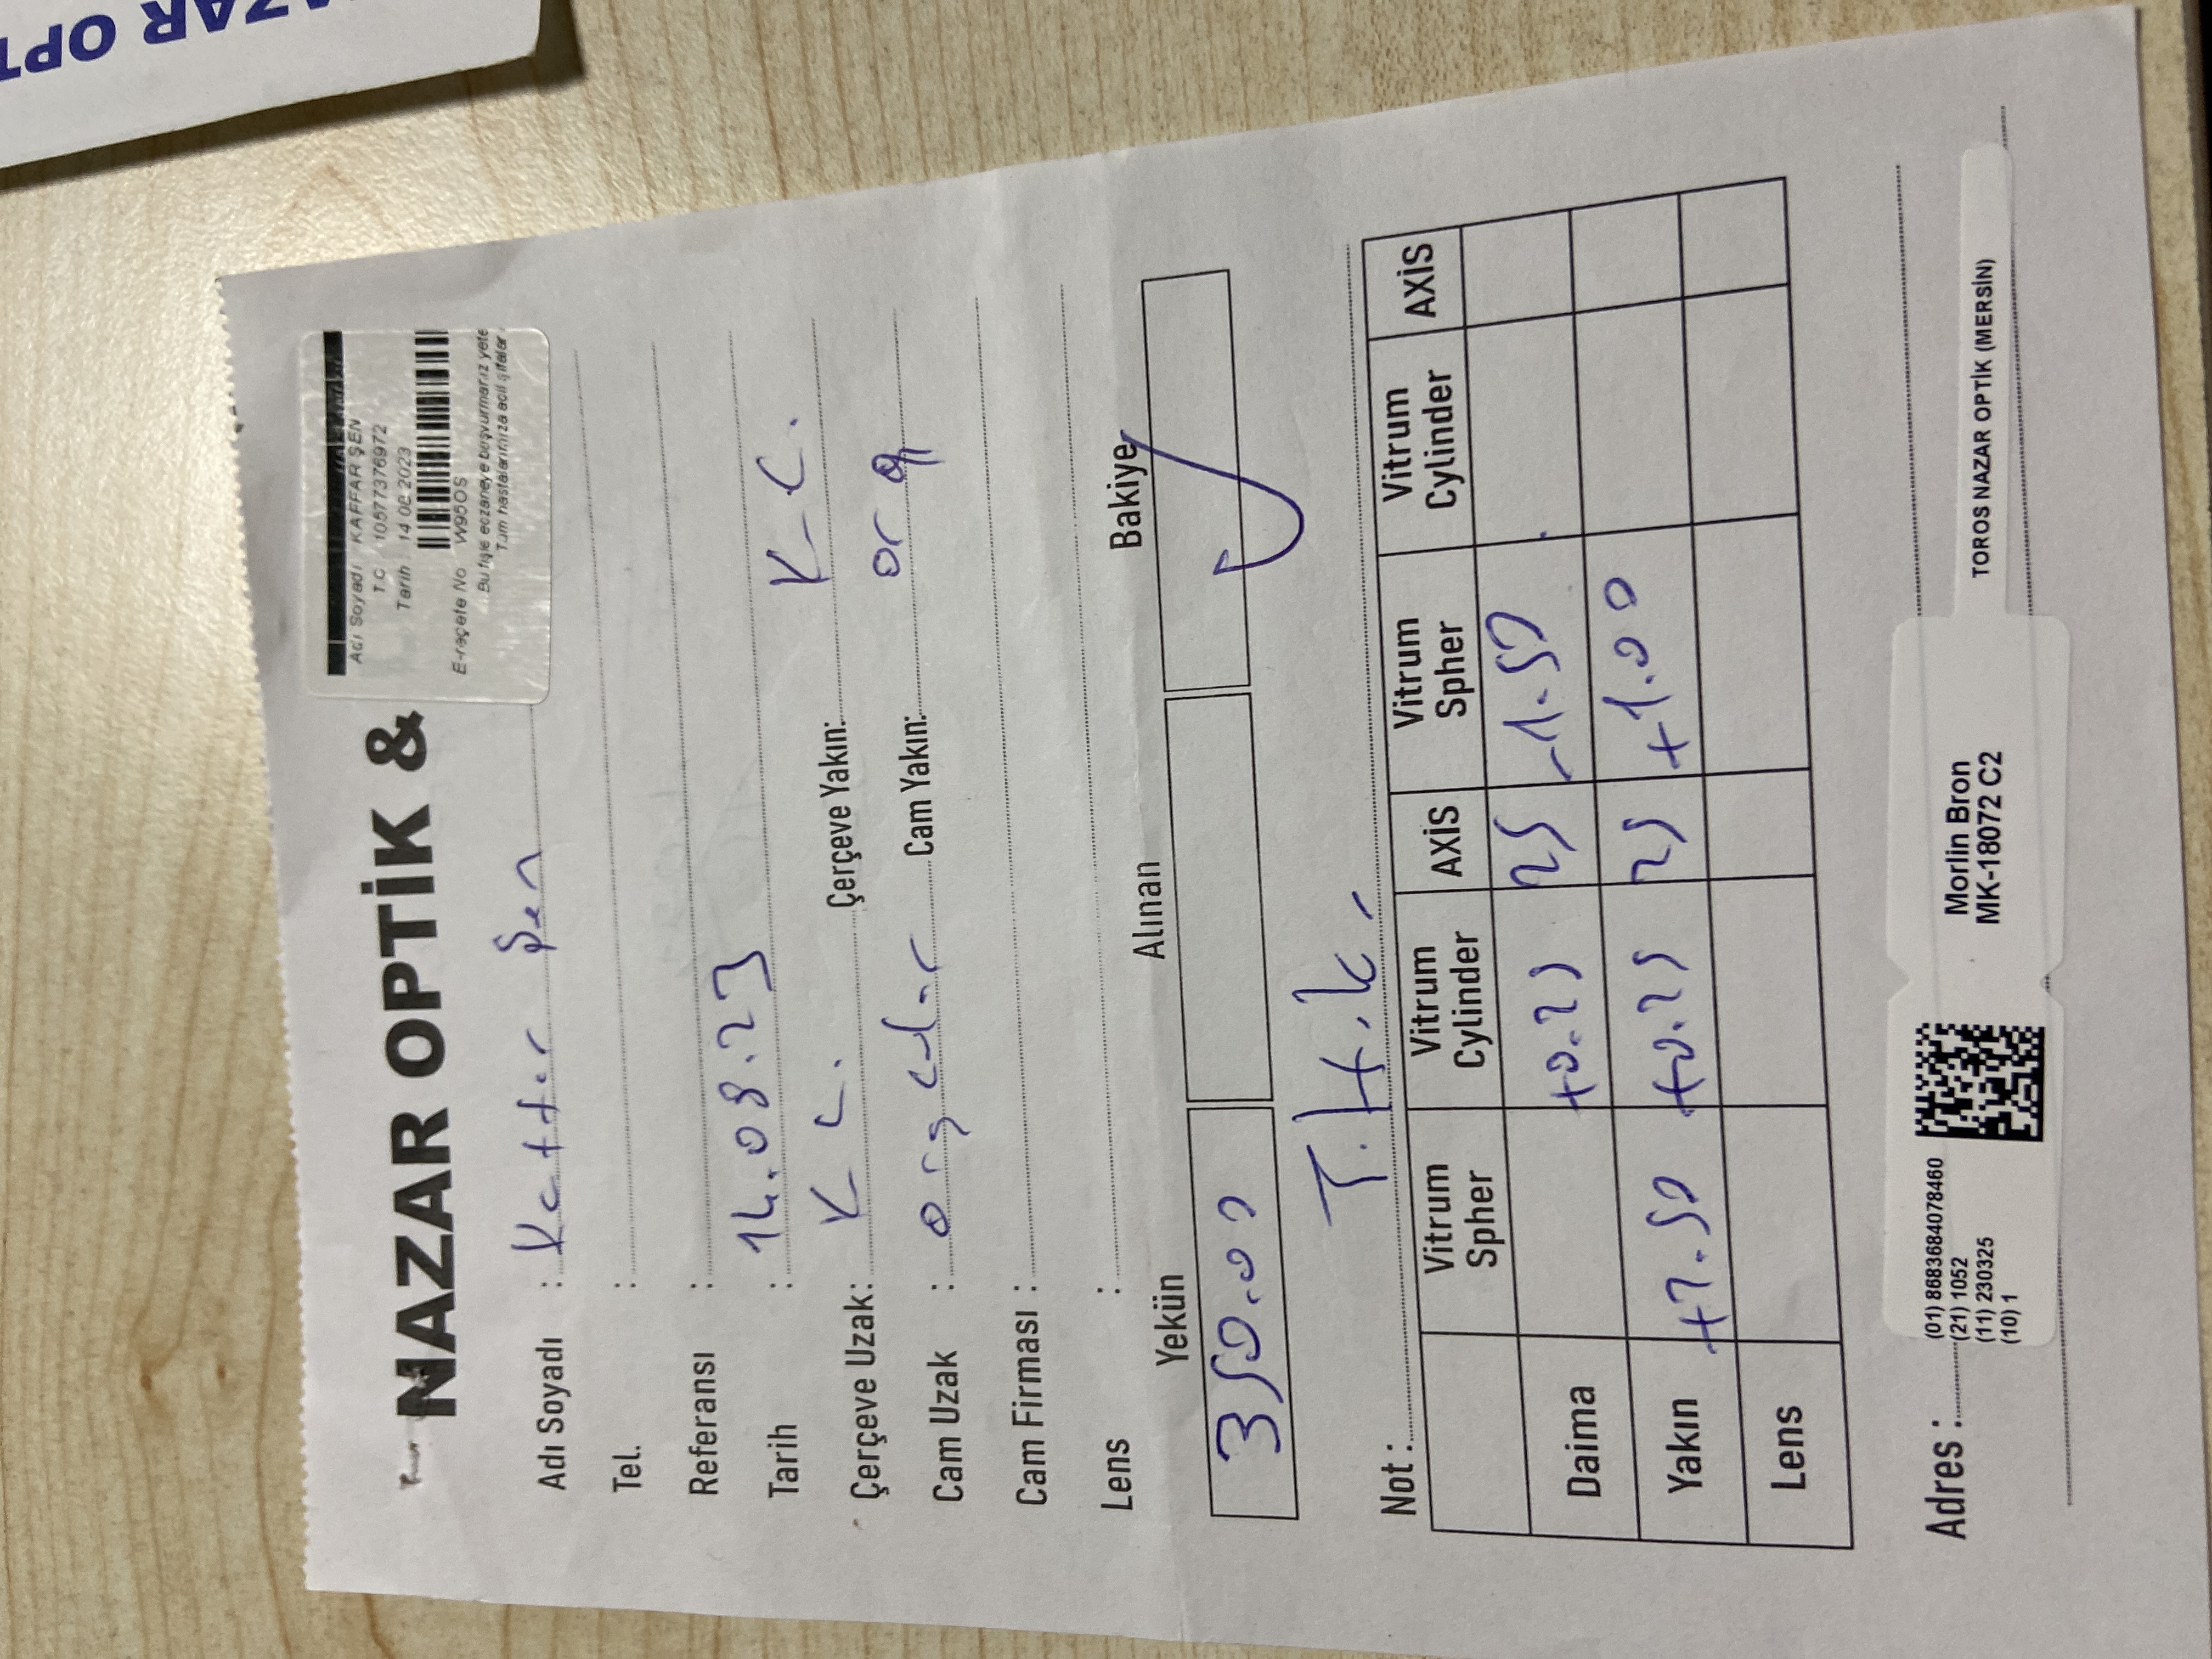 NAZAR OPTİK &
Adı Soyadı KAFFAR ŞEN
T.C 10577376972
Tarih 14.08.2023
E-reçete No W95OS
Bu fişle eczaneye başvurmanız yete
Tüm hastalarımıza acil şifalar
Adı Soyadı : Kaffar Şen
Tel. :
Referansı :
Tarih : 14.08.23
Çerçeve Uzak: K C. Çerçeve Yakın: K-C.
Cam Uzak : org Cam Yakın: org
Cam Firması :
Lens :
Yekün Alınan Bakiye
350.00
Not : T.H.k.
Vitrum Spher Vitrum Cylinder AXİS Vitrum Spher Vitrum Cylinder AXİS
Daima +0.25 25 -1.50
Yakın +2.50 +0.25 25 +1.00
Lens
Adres :
(01) 8683684078460
(21) 1052
(11) 230325
(10) 1
Morlin Bron
MK-18072 C2
TOROS NAZAR OPTİK (MERSİN)
AZAR OPT